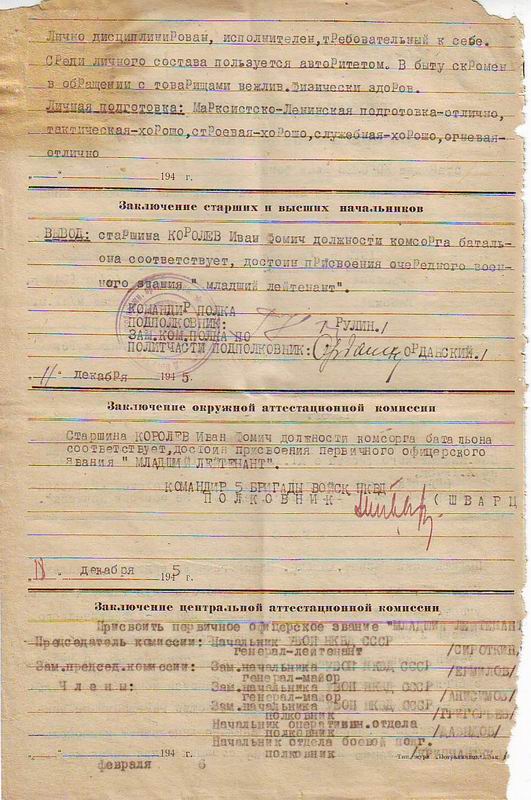 Лично дисциплинирован, исполнителен, требовательный к себе.
Среди личного состава пользуется авторитетом. В быту скромен
в обращении с товарищами вежлив. Физически здоров.
Личная подготовка: Марксистско-Ленинская подготовка-отлично,
тактическая-хорошо, строевая-хорошо, служебная-хорошо, огневая-
отлично
„ — “ 194 г.
Заключение старших и высших начальников
ВЫВОД: старшина КОРОЛЕВ Иван Фомич должности комсорга баталь-
она соответствует, достоин присвоения очередного воен-
ного звания " младший лейтенант".
КОМАНДИР ПОЛКА
ПОДПОЛКОВНИК: /ГРУЛИН./
ЗАМ.КОМ.ПОЛКА ПО
ПОЛИТЧАСТИ ПОДПОЛКОВНИК: ОРДАНСКИЙ./
„11“ декабря 1945.
Заключение окружной аттестационной комиссии
Старшина КОРОЛЕВ Иван Фомич должности комсорга батальона
соответствует, достоин присвоения первичного офицерского
звания " МЛАДШИЙ ЛЕЙТЕНАНТ".
КОМАНДИР 5 БРИГАДЫ ВОЙСК НКВД
ПОЛКОВНИК (ШВАРЦ
„18“ декабря 1945 г.
Заключение центральной аттестационной комиссии
Присвоить первичное офицерское звание "МЛАДШИЙ ЛЕЙТЕНАН
Председатель комиссии: Начальник УВОП НКВД СССР
генерал-лейтенант /СИРОТКИН
Зам.председ.комиссии: Зам.начальника УВОП НКВД СССР
генерал-майор /ЕРМИЛОВ/
Члены: Зам.начальника УВОП НКВД СССР
генерал-майор /АНИСИМОВ/
Зам.начальника УВОП НКВД СССР
полковник /ГРИГОРЬЕВ/
Начальник оперативн.отдела
полковник /ДАВЫДОВ/
Начальник отдела боевой подг.
полковник
„ — “ 194 г.
февраля 6